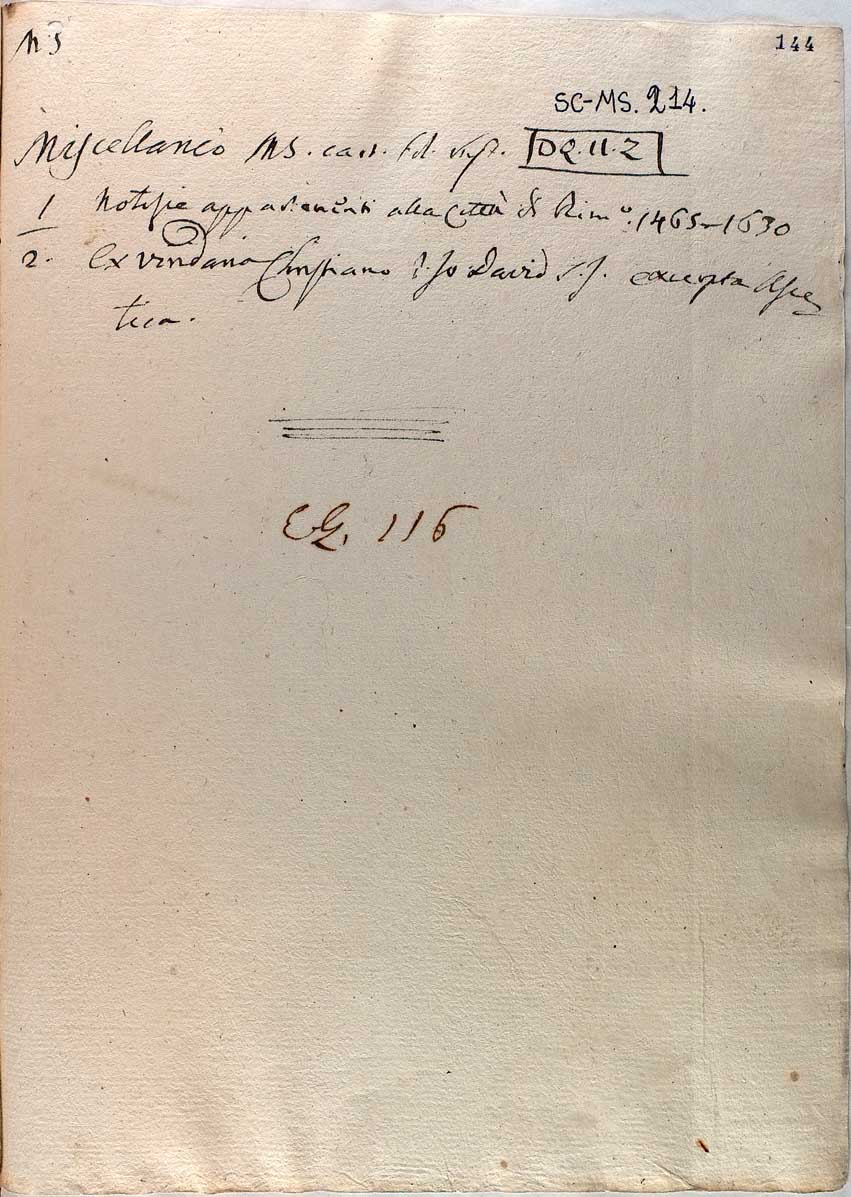 MS
144
SC-MS. 214.
Miscellaneo MS. cart. fol. DQ.II.Z
1 Notisie appartenenti alla Città di Rim.o 1465-1630
2. Ex viridario Christiano P. Jo David S.J. excerpta Asce
tica.
116